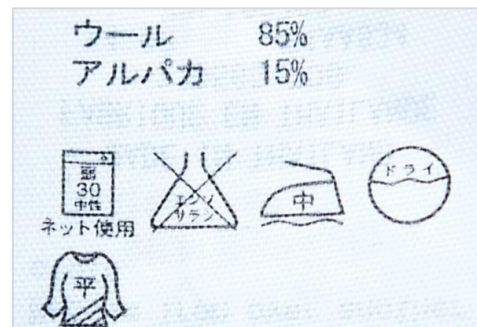 ウール 85%
アルパカ 15%
弱
30
中性
ネット使用
エンソ
サラシ
中
ドライ
平